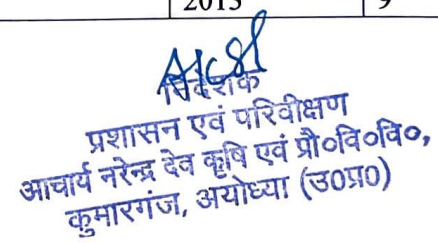 2013 9
निदेशक
प्रशासन एवं परिवीक्षण
आचार्य नरेन्द्र देव कृषि एवं प्रौ०वि०वि०,
कुमारगंज, अयोध्या (उ०प्र०)